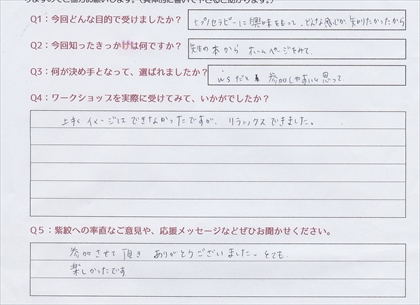 Q1：今回どんな目的で受けましたか？
ヒプノセラピーに興味をもって、どんな感じか知りたかったから
Q2：今回知ったきっかけは何ですか？
先生の本から ホームページをみて、
Q3：何が決め手となって、選ばれましたか？
w'sだと 参加しやすいと思って
Q4：ワークショップを実際に受けてみて、いかがでしたか？
上手くイメージはできなかったですが、リラックスできました。
Q5：紫紋への率直なご意見や、応援メッセージなどぜひお聞かせください。
参加させて頂き ありがとうございました。とても
楽しかったです